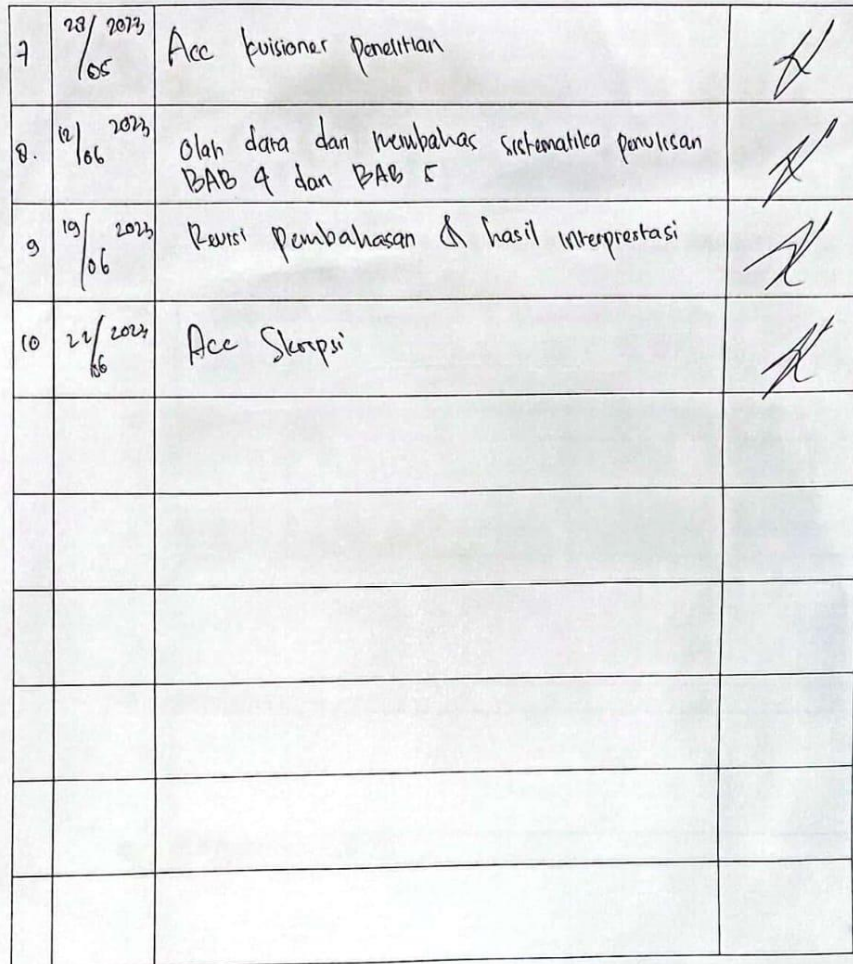 7 28/05 2023 Acc kuisioner penelitian
8. 12/06 2023 olah data dan membahas sistematika penulisan
BAB 4 dan BAB 5
9 19/06 2023 Revisi pembahasan & hasil interprestasi
10 22/06 2023 Acc Skripsi